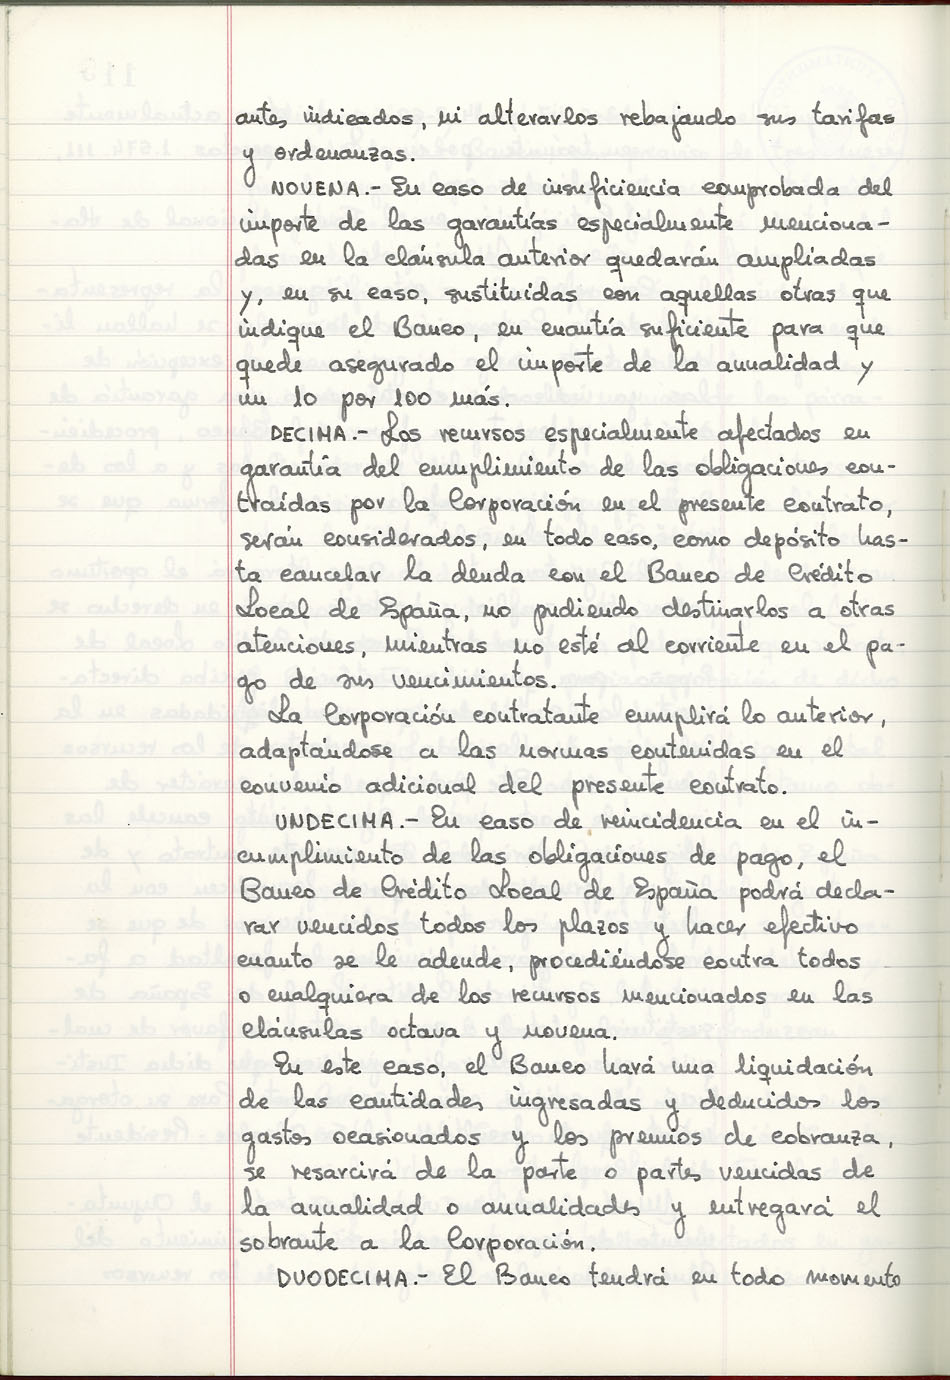 antes indicados, ni alterarlos rebajando sus tarifas
y ordenanzas.
NOVENA.- En caso de insuficiencia comprobada del
importe de las garantías especialmente menciona-
das en la cláusula anterior quedarán ampliadas
y, en su caso, sustituidas con aquellas otras que
indique el Banco, en cuantía suficiente para que
quede asegurado el importe de la anualidad y
un 10 por 100 más.
DECIMA.- Los recursos especialmente afectados en
garantía del cumplimiento de las obligaciones con-
traídas por la Corporación en el presente contrato,
serán considerados, en todo caso, como depósito has-
ta cancelar la deuda con el Banco de Crédito
Local de España, no pudiendo destinarlos a otras
atenciones, mientras no esté al corriente en el pa-
go de sus vencimientos.
La Corporación contratante cumplirá lo anterior,
adaptándose a las normas contenidas en el
convenio adicional del presente contrato.
UNDECIMA.- En caso de reincidencia en el in-
cumplimiento de las obligaciones de pago, el
Banco de Crédito Local de España podrá decla-
rar vencidos todos los plazos y hacer efectivo
cuanto se le adeude, procediéndose contra todos
o cualquiera de los recursos mencionados en las
cláusulas octava y novena.
En este caso, el Banco hará una liquidación
de las cantidades ingresadas y deducidos los
gastos ocasionados y los premios de cobranza,
se resarcirá de la parte o partes vencidas de
la anualidad o anualidades y entregará el
sobrante a la Corporación.
DUODECIMA.- El Banco tendrá en todo momento